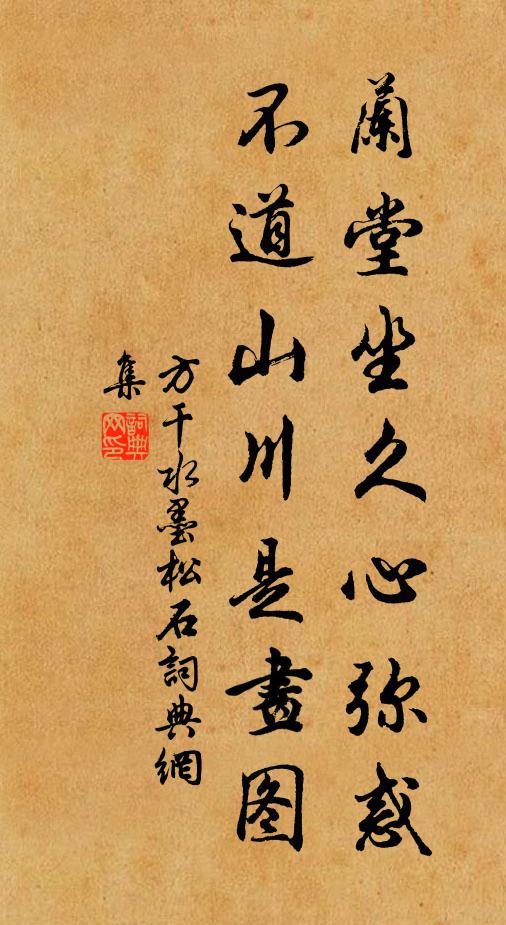 蘭堂坐久心弥惑
不道山川是畫图
方干水墨松石詞典網
集
詞典
网印